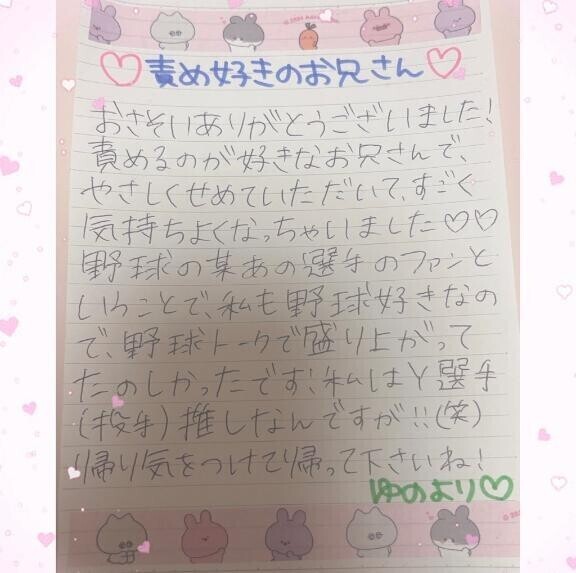 ♡責め好きのお兄さん♡
おさそいありがとうございました!
責めるのが好きなお兄さんで、
やさしくせめていただいて、すごく
気持ちよくなっちゃいました♡♡
野球の某あの選手のファンと
いうことで、私も野球好きなの
で、野球トークで盛り上がって
たのしかったです!私はY選手
(投手)推しなんですが!!(笑)
帰り気をつけて帰って下さいね!
ゆのより♡